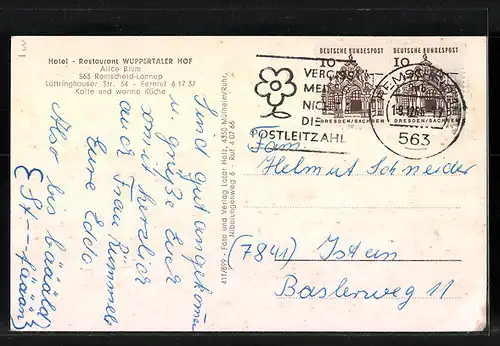 Hotel - Restaurant WUPPERTALER HOF
Alice Blum
563 Remscheid-Lennep
Lüttringhauser Str. 34 - Fernruf 6 17 37
Kalte und warme Küche
Sind gut angekomme
u. grüße Euch
somit herzlich
auch Frau Kümmel
Eure Edda
Also bis bääld
(St--fääan)
411/809 - Foto und Verlag Lazar Holz, 4330 Mülheim/Ruhr,
Nibelungenweg 6 Ruf 4 07 66
VERGISS
MEIN
NICHT
DIE
POSTLEITZAHL
DEUTSCHE BUNDESPOST
10
DRESDEN/SACHSEN
DEUTSCHE BUNDESPOST
10
DRESDEN/SACHSEN
REMSCHEID
563
Fam.
Helmut Schneider
(7841) Istein
Baslerweg 11